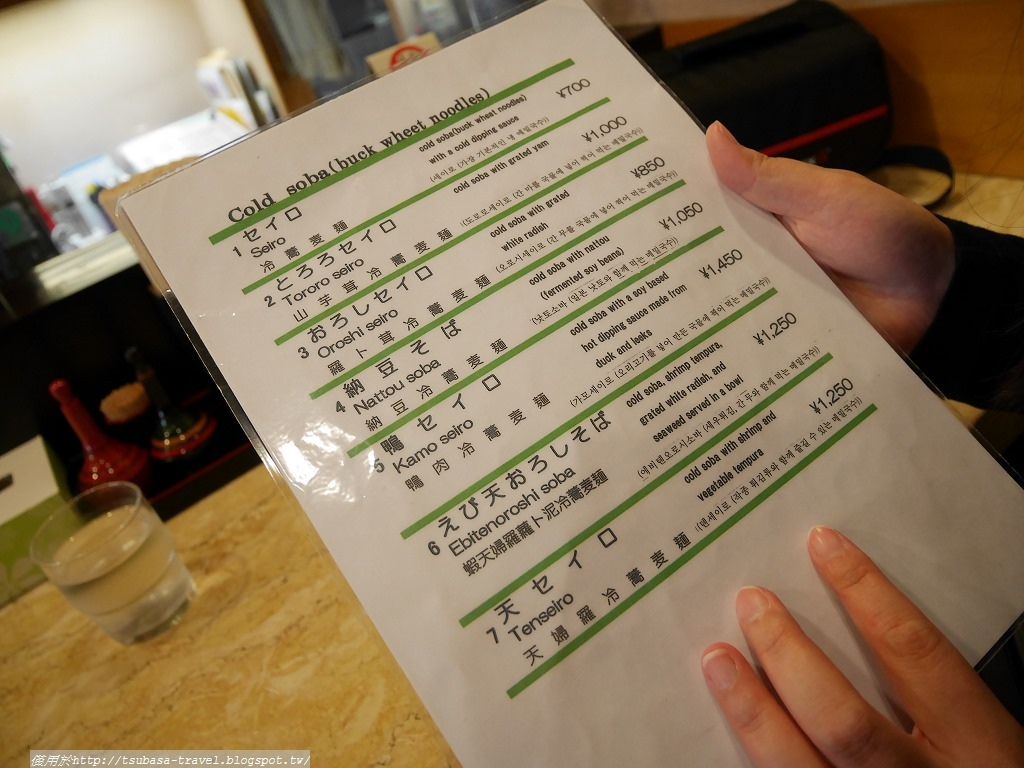 Cold soba(buck wheet noodles)
1 セイロ
Seiro
冷蕎麦麵
cold soba(buck wheat noodles)
with a cold dipping sauce
(세이로 (가장 기본적인 냉 메밀국수))
¥700
2 とろろセイロ
Tororo seiro
山芋茸冷蕎麦麵
cold soba with grated yam
(도로로세이로 (간 마를 국물에 넣어 찍어 먹는 메밀국수))
¥1,000
3 おろしセイロ
Oroshi seiro
羅卜茸冷蕎麦麵
cold soba with grated
white radish
(오로시세이로 (간 무를 국물에 넣어 찍어 먹는 메밀국수))
¥850
4 納豆そば
Nattou soba
納豆冷蕎麦麵
cold soba with nattou
(fermented soy beans)
(낫토소바 (일본 낫토와 함께 먹는 메밀국수))
¥1,050
5 鴨セイロ
Kamo seiro
鴨肉冷蕎麦麵
cold soba with a soy based
hot dipping sauce made from
duck and leaks
(가모세이로 (오리고기를 넣어 만든 국물에 찍어 먹는 메밀국수))
¥1,450
6 えび天おろしそば
Ebitenoroshi soba
蝦天婦羅蘿卜泥冷蕎麦麵
cold soba, shrimp tempura,
grated white radish, and
seaweed served in a bowl
(에비텐오로시소바 (새우튀김, 간 무와 함께 먹는 메밀국수))
¥1,250
7 天セイロ
Tenseiro
天婦羅冷蕎麦麵
cold soba with shrimp and
vegetable tempura
(텐세이로 (각종 튀김류와 함께 즐길 수 있는 메밀국수))
¥1,250
http://tsubasa-travel.blogspot.tw/